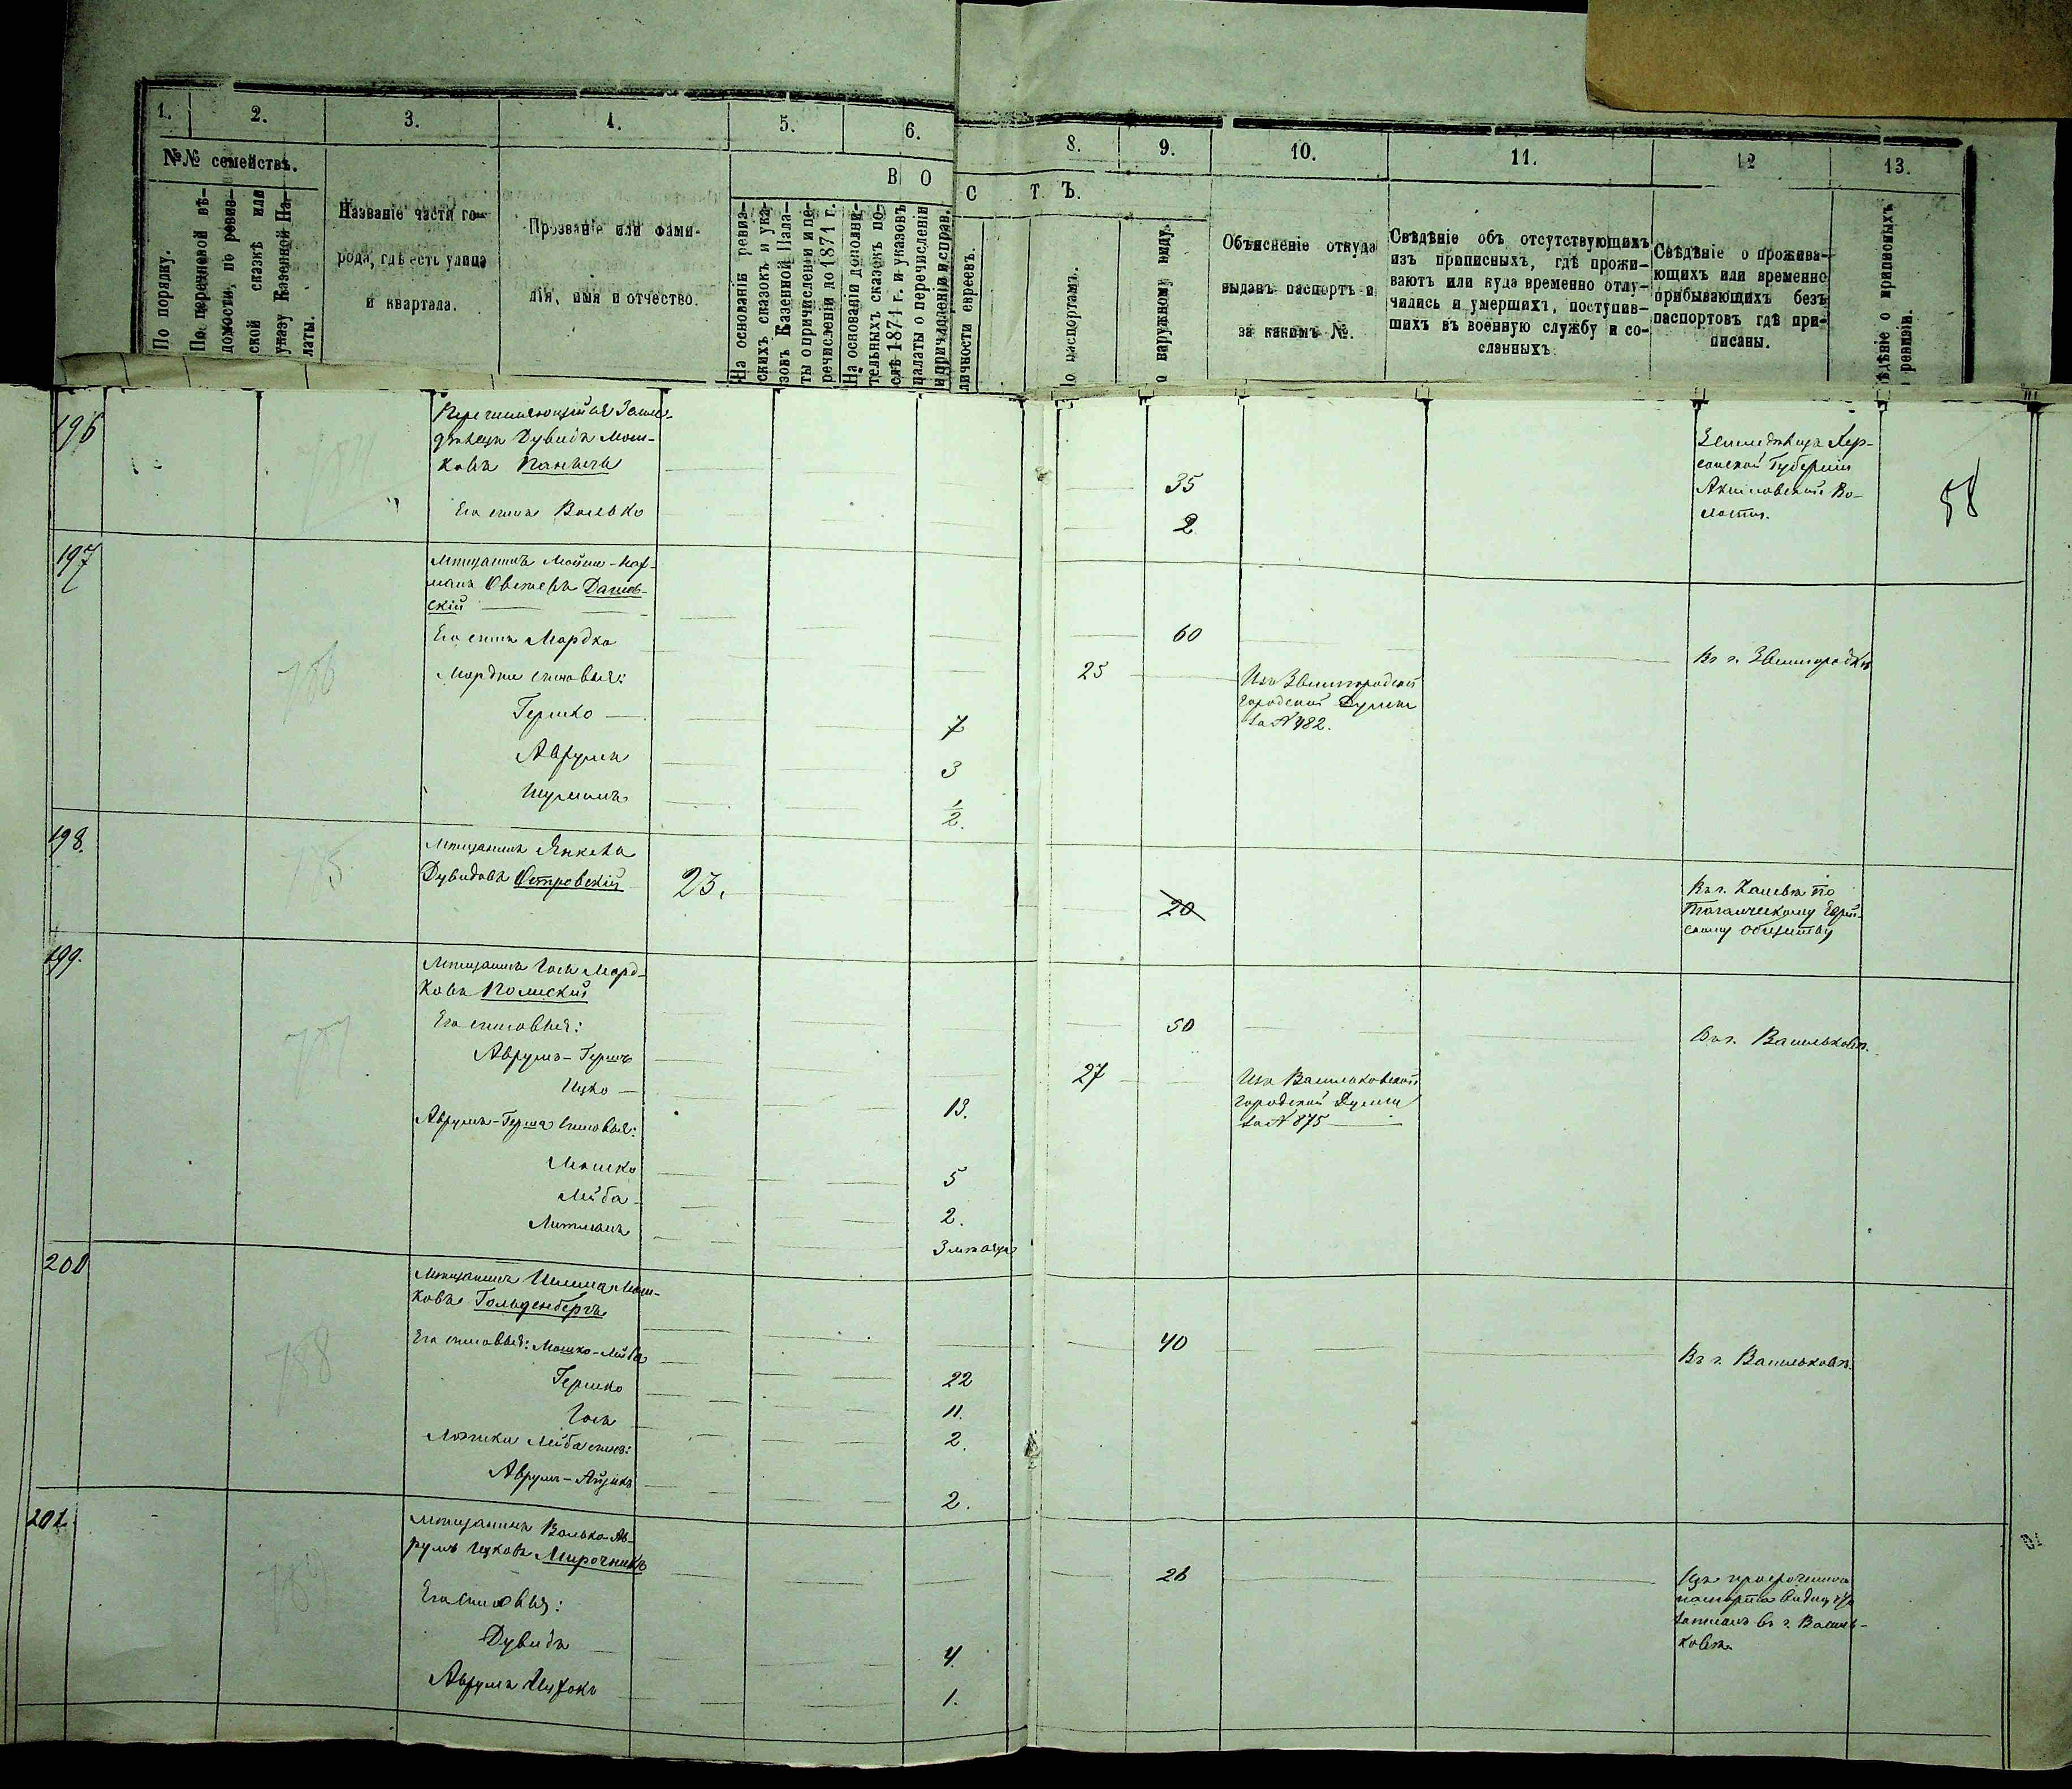 1. 2. 3. 4. 5. 6. 8. 9. 10. 11. 12 13.
№№ семействъ.
В О С Т Ъ.
По порядку.
По перечневой вѣ-
домости, по ревиз-
ской сказкѣ или
указу Казенной Па-
латы.
Названіе части го-
рода, гдѣ есть улица
и квартала.
Прозваніе или фами-
лія, имя и отчество.
На основаніи ревиз-
скихъ сказокъ и ука-
зовъ Казенной Пала-
ты о причисленіи и пе-
речисленіи до 1871 г.
На основаніи дополни-
тельныхъ сказокъ по-
слѣ 1871 г. и указовъ
палаты о перечисленіи
и причисленіи и справ.
личности евреевъ.
по паспортамъ.
о наружному виду.
Объясненіе откуда
выданъ паспортъ и
за какимъ №.
Свѣдѣніе объ отсутствующихъ
изъ приписныхъ, гдѣ прожи-
ваютъ или куда временно отлу-
чились и умершихъ, поступив-
шихъ въ военную службу и со-
сланныхъ.
Свѣдѣніе о прожива-
ющихъ или временно
прибывающихъ безъ
паспортовъ гдѣ при-
писаны.
ѣдѣніе о приписныхъ
ревизіи.
196
Дувидъ Мош-
ковъ
35
Земледѣлецъ Хер-
сонской Губерніи
Во-
лости.
58
Его сынъ Волько
2
197
Мѣщанинъ
скій
60
Въ г. Звенигородкѣ
786
Его сынъ Мордко
25
Изъ Звенигородской
городской Думы
за № 482.
Мордки сыновья:
Гершко 7
Аврумъ 3
1/2.
198.
785
Мѣщанинъ Янкель
Дувидовъ Островскій
23.
20
Въ г.
Еврей-
скому обществу
199.
787
Мѣщанинъ Морд-
ковъ Полискій
50
Въ г. Васильковѣ.
Его сыновья:
Аврумъ-Гершъ
27
Изъ Васильковской
городской Думы
за № 875
Ицко 13.
Аврумъ-Герша сыновья:
Мошко 5
Лейба 2.
Литманъ 3 мѣсяца
200
788
Мѣщанинъ Мош-
ковъ Гольденбергъ
40
Въ г. Васильковѣ.
Его сыновья: Мошко-Лейба 22
Гершко 11.
2.
Мошки Лейба сынъ:
Аврумъ-Айзикъ 2.
201
789
Мѣщанинъ Волько-Ав-
румъ Ицковъ Мирочникъ
26
просроченнаго
паспорта видно что
записанъ въ г. Василь-
ковѣ.
Его сыновья:
Дувидъ 4.
Аврумъ 1.